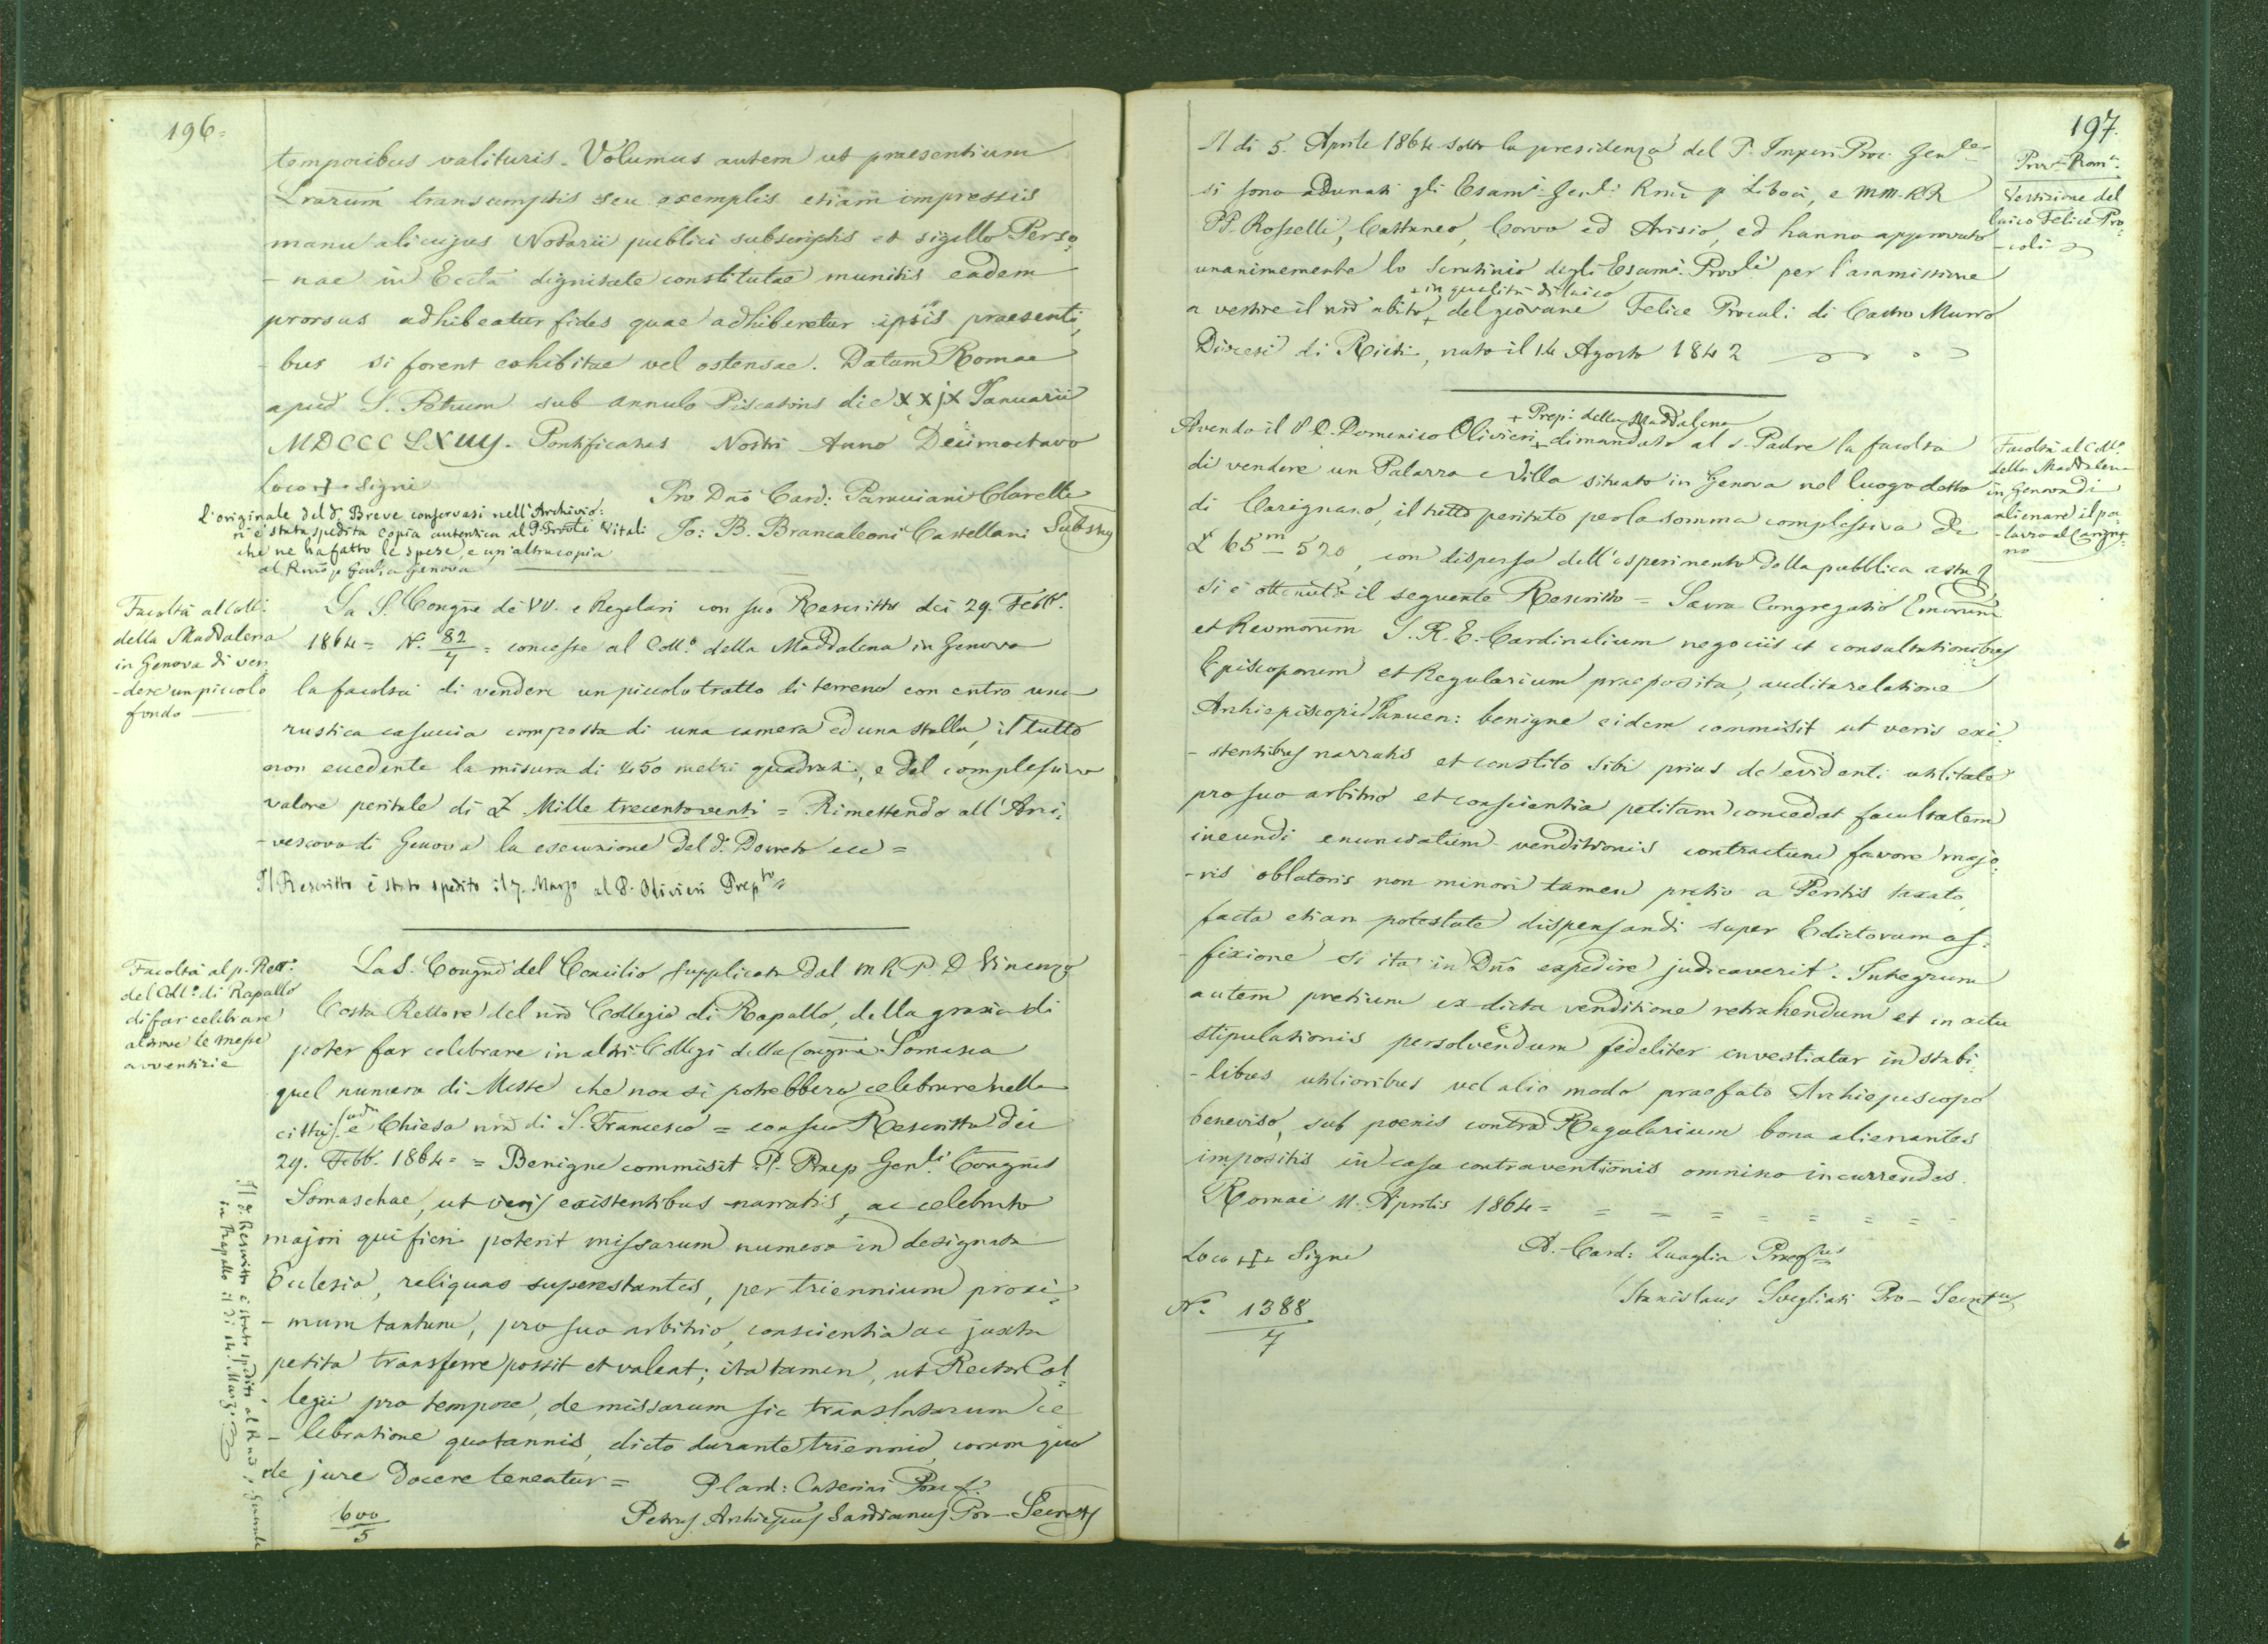 196=
temporibus valituris. Volumus autem ut praesentium
Lrarum transumptis seu exemplis etiam impressis
manu alicujus Notarii publici subscriptis et sigillo Perso
-nae in Eccta dignitate constitutae munitis eadem
prorsus adhibeatur fides quae adhiberetur ipsis praesenti,
-bus si forent exhibitae vel ostensae. Datum Romae
apud S. Petrum sub annulo Piscatoris die XXjX Januarii
MDCCCLXIIIJ. Pontificatus Nostri Anno Decimoctavo
Loco + Signi
Pro Dno Card: Paracciani Clarelli
Jo: B. Brancaleoni Castellani Substus
L'originale del d. Breve conservasi nell'Archivio:
n'è stata spedita copia autentica al P. Vitali
che ne ha fatto le spese, e un'altra copia
al Rmo p Genle a Genova
Facoltà al Coll:
della Maddalena
in Genova di ven
-dere un piccolo
fondo
La S. Congne de' VV. e Regolari con suo Rescritto dei 29. Febb.
1864= N. 82/7 = concesse al Coll.o della Maddalena in Genova
la facoltà di vendere un piccolo tratto di terreno con entro una
rustica casuccia composta di una camera ed una stalla, il tutto
non eccedente la misura di 450 metri quadrati, e del complessivo
valore peritale di £ Mille trecentoventi = Rimettendo all'Arci,
-vescovo di Genova la esecuzione del d. Decreto ecc =
Il Rescritto è stato spedito il 7. Marzo al P. Olivieri Prepto
Facoltà al p. Rett.e
del Coll.o di Rapallo
di far celebrare
altrove le messe
avventizie
La S. Congne del Concilio supplicata dal M R P. D Vincenzo
Costa Rettore del nro Collegio di Rapallo, della grazia di
poter far celebrare in altri Collegi della Congne Somasca
quel numero di Messe che non si potrebbero celebrare nella
città e Chiesa nra di S. Francesco = con suo Rescritto dei
29. Febb. 1864= = Benigne commisit P. Praep Genli Congnis
Somaschae, ut veris existentibus narratis, ac celebrato
majori qui fieri poterit missarum numero in designata
Ecclesia, reliquas superextantes, per triennium proxi,
-mum tantum, pro suo arbitrio, conscientia ac juxta
petita transferre possit et valeat; ita tamen, ut Rector Col
legii pro tempore, de missarum sic translatarum ce
-lebratione quotannis, dicto durante triennio, coram quo
de jure docere teneatur =
P Card: Caterini Praef.
Petrus Archiepus Sardianus Pro-Secrets
600/5
Il d. Rescritto è stato spedito al Rmo p. Generale
in Rapallo il di 14. Marz.
197.
Il di 5. Aprile 1864 sotto la presidenza del P. Imperi Proc. Genle
si sono adunati gli Esami. Genli Rmo p Libois, e MM. RR
PP. Rosselli, Cattaneo, Corvo ed Arisio, ed hanno approvato
unanimemente lo Scrutinio degli Esami. Provli per l'ammissione
+ in qualità di laico
a vestire il nro abito + del giovane Felice Procoli di Castro Murro
Diocesi di Rieti, nato il 14 Agosto 1842
Prova Roma
Vestizione del
laico Felice Pro
-coli
+ Prep: della Maddalena
Avendo il P. D. Domenico Olivieri + dimandato al S. Padre la facoltà
di vendere un Palazzo e Villa situato in Genova nel luogo detto
di Carignano, il tutto peritato per la somma complessiva di
£ 65m 520, con dispensa dell'esperimento della pubblica asta,
si è ottenuto il seguente Rescritto = Sacra Congregatio Emorum
et Revmorum S. R. E. Cardinalium negociis et consultationibus
Episcoporum et Regularium praeposita, audita relatione
Archiepiscopi Januen: benigne eidem commisit ut veris exi
-stentibus narratis et constito sibi prius de evidenti utilitate
pro suo arbitrio et conscientia petitam concedat facultatem
ineundi enunciatum venditionis contractum favore majo
-ris oblatoris non minori tamen pretio a Peritis taxato,
facta etiam potestate dispensandi super Edictorum af-
fixione si ita in Dno expedire judicaverit. Integrum
autem pretium ex dicta venditione retrahendum et in actu
stipulationis persolvendum fideliter investiatur in stabi
-libus utilioribus vel alio modo praefato Archiepiscopo
beneviso, sub poenis contra Regularium bona alienantes
impositis in casu contraventionis omnino incurrendis.
Romae 11. Aprilis 1864 =
Facoltà al Coll.o
della Maddalena
in Genova di
alienare il pa
-lazzo al Carigna
no
Loco + Signi
A. Card: Quaglia Praefus
Stanislaus Svegliati Pro-Secrius
N.o 1388/7